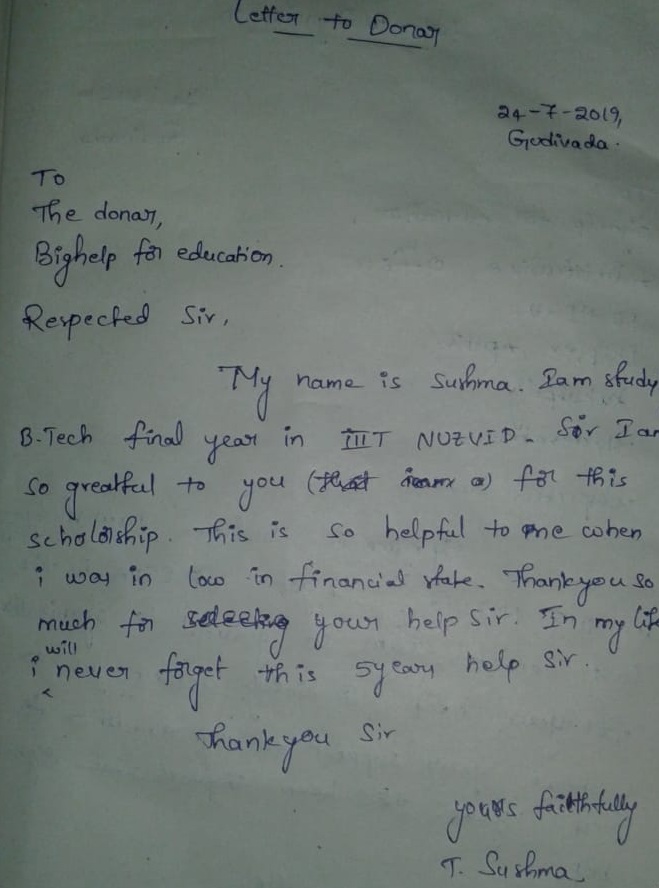 Letter to Donar
24-7-2019,
Gudivada.
To
The donar,
Bighelp for education.
Respected Sir,
My name is Sushma. Iam study
B-Tech final year in IIIT NUZVID. Sir I am
so greatful to you (that iam a) for this
scholorship. This is so helpful to me when
i was in low in financial state. Thankyou so
much for selecting your help sir. In my life
i will never forget this 5years help sir.
Thankyou Sir
yours faithfully
T. Sushma